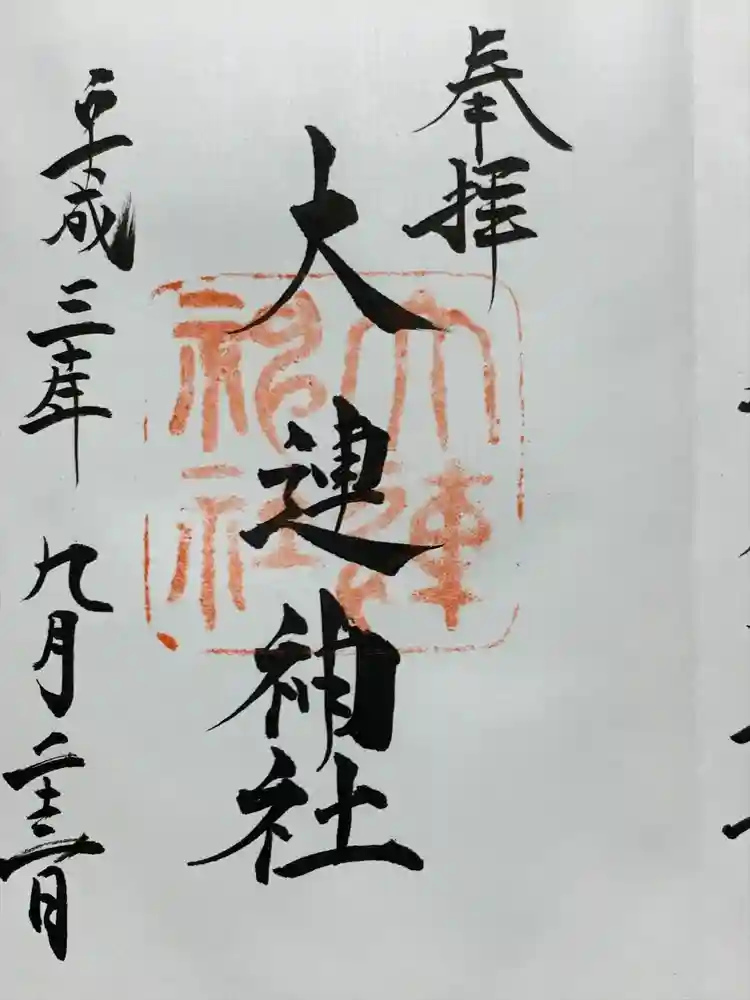 奉拝
大連神社
大連
神社
平成三十年九月二十三日